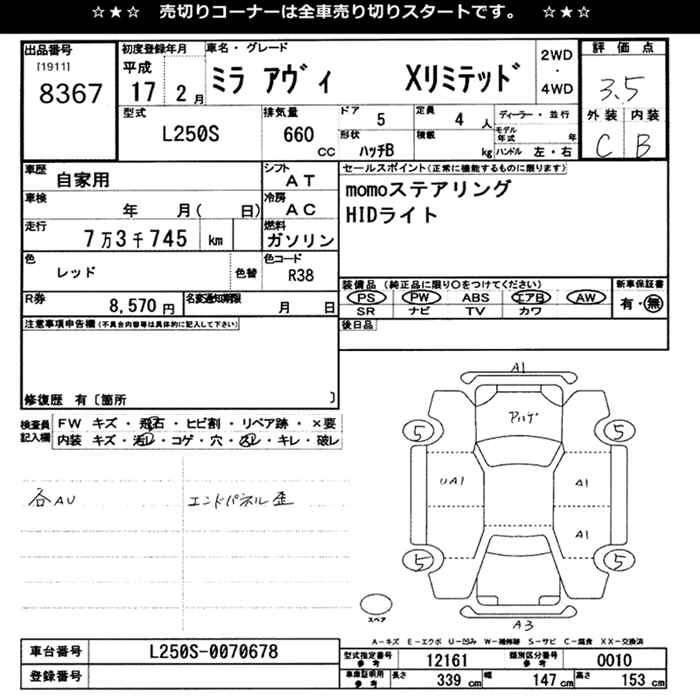 ☆★☆ 売切りコーナーは全車売り切りスタートです。 ☆★☆
出品番号
[1911]
8367
初度登録年月
平成
17 2月
車名・グレード
ミラ アヴィ Xリミテッド
2WD
・
4WD
評価点
3.5
外装 内装
C B
型式
L250S
排気量
660
cc
ドア
5
定員
4 人
形状
ハッチB
積載
kg
ディーラー・並行
モデル年式 年
ハンドル 左・右
車歴
自家用
シフト
AT
車検
年 月( 日)
冷房
AC
走行
7万3千745 km
燃料
ガソリン
色
レッド
色替
色コード
R38
R券
8,570 円
名変通知期限
月 日
セールスポイント(正常に機能するものに限ります)
momoステアリング
HIDライト
装備品 (純正品に限り○をつけてください)
PS PW ABS エアB AW
SR ナビ TV カワ
新車保証書
有・無
後日品
注意事項申告欄(不具合内容等は具体的に記入して下さい)
修復歴 有〔箇所 〕
検査員記入欄
FW キズ・飛石・ヒビ割・リペア跡・×要
内装 キズ・汚レ・コゲ・穴・スレ・キレ・破レ
各AU
エンドパネル歪
A1
5
5
UA1
A1
A1
5
5
A3
スペア
A-キズ E-エクボ U-凹み W-補修跡 S-サビ C-腐食 XX-交換済
車台番号
L250S-0070678
登録番号
型式指定番号
参考
12161
類別区分番号
参考
0010
車庫証明用
参考
長さ 339 cm 幅 147 cm 高さ 153 cm